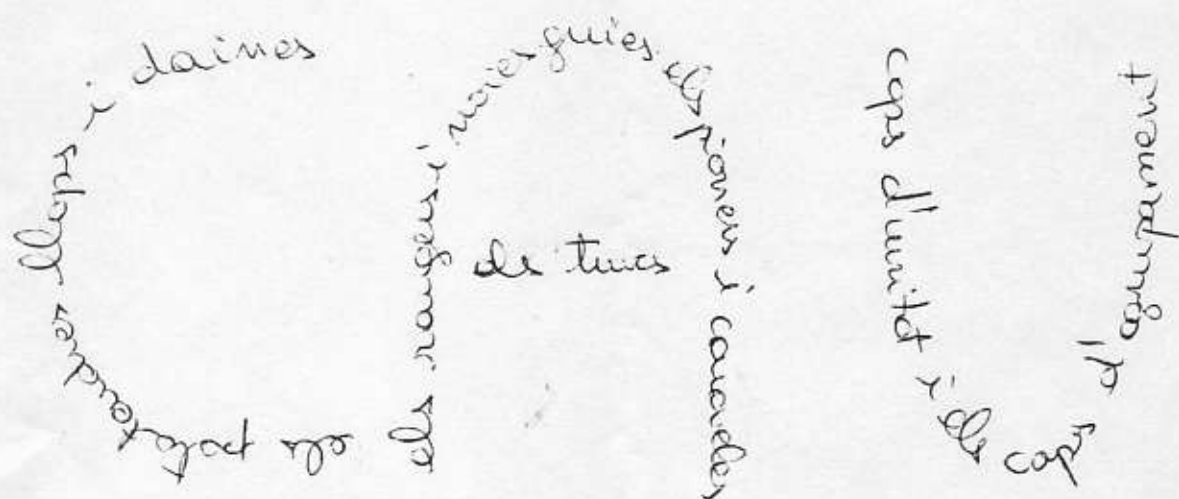 els potatendres llops i daines
els rangers i noies guies els pioners i caraveles
els trucs
caps d'unitat i els caps d'agrupament